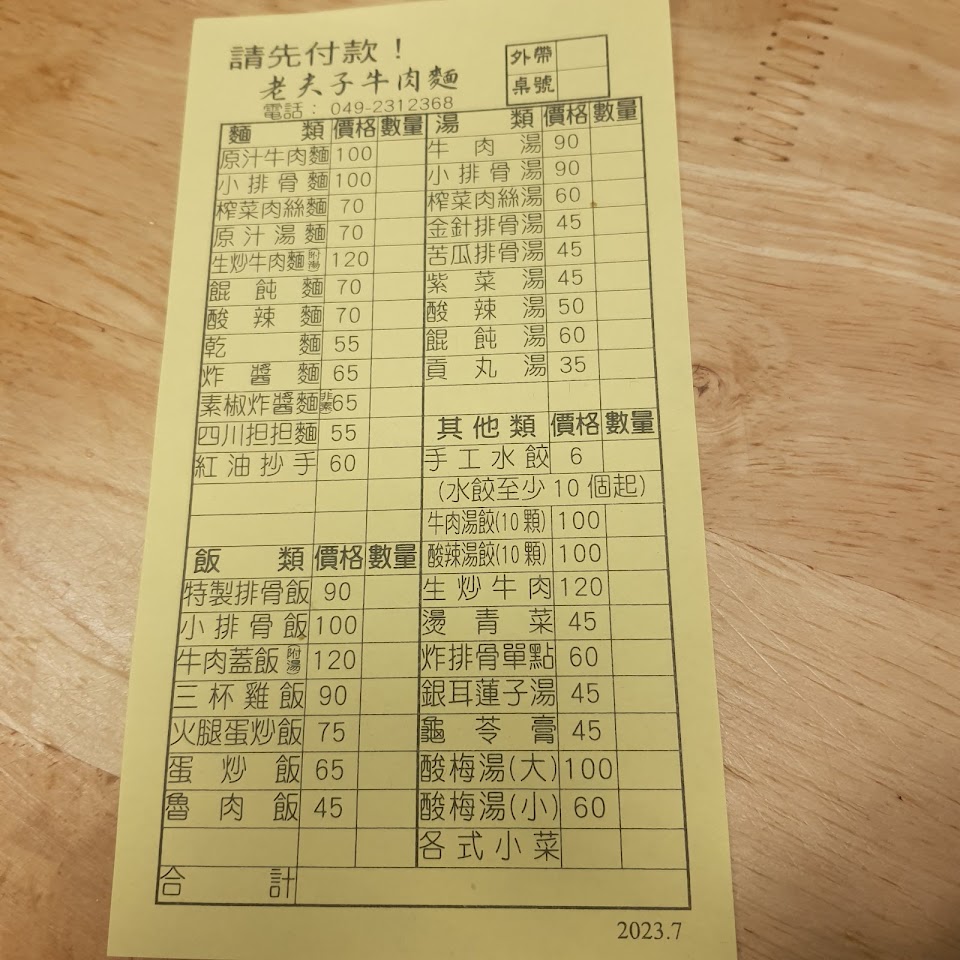 請先付款！
老夫子牛肉麵
電話： 049-2312368
外帶
桌號
麵類 價格 數量
原汁牛肉麵 100
小排骨麵 100
榨菜肉絲麵 70
原汁湯麵 70
生炒牛肉麵附湯 120
餛飩麵 70
酸辣麵 70
乾麵 55
炸醬麵 65
素椒炸醬麵非素 65
四川担担麵 55
紅油抄手 60
飯類 價格 數量
特製排骨飯 90
小排骨飯 100
牛肉蓋飯附湯 120
三杯雞飯 90
火腿蛋炒飯 75
蛋炒飯 65
魯肉飯 45
湯類 價格 數量
牛肉湯 90
小排骨湯 90
榨菜肉絲湯 60
金針排骨湯 45
苦瓜排骨湯 45
紫菜湯 45
酸辣湯 50
餛飩湯 60
貢丸湯 35
其他類 價格 數量
手工水餃 6
(水餃至少10個起)
牛肉湯餃(10顆) 100
酸辣湯餃(10顆) 100
生炒牛肉 120
燙青菜 45
炸排骨單點 60
銀耳蓮子湯 45
龜苓膏 45
酸梅湯(大) 100
酸梅湯(小) 60
各式小菜
合計
2023.7